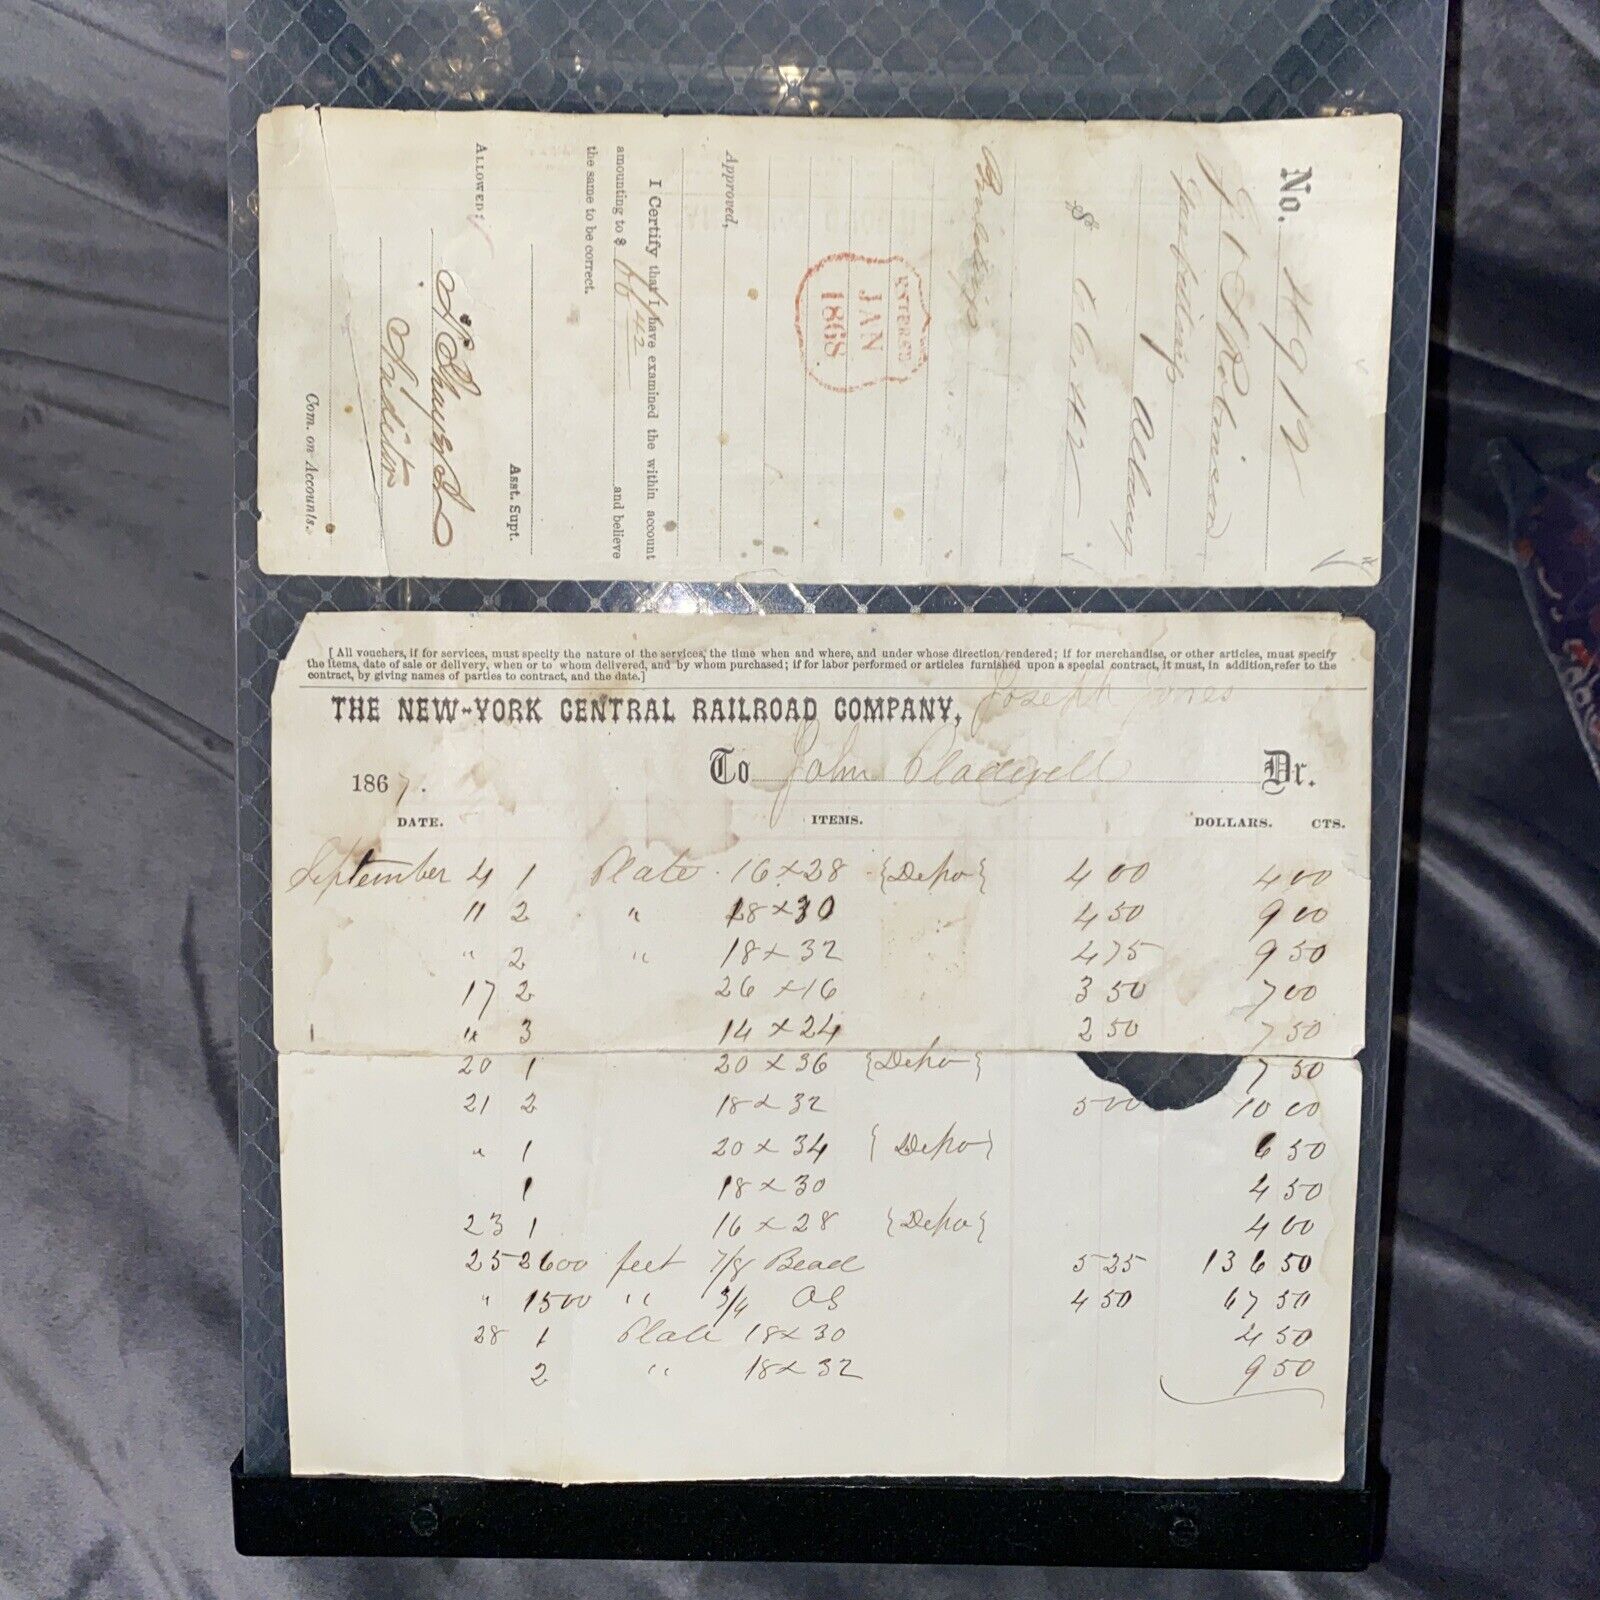 No. 4912
J & S Robinson
Albany
$ 66.42
Buildings
ENTERED
JAN
1868
Approved,
I Certify that I have examined the within account
amounting to $ 66/42 and believe
the same to be correct.
Asst. Supt.
ALLOWED:
Auditor
Com. on Accounts.
[All vouchers, if for services, must specify the nature of the services, the time when and where, and under whose direction rendered; if for merchandise, or other articles, must specify
the items, date of sale or delivery, when or to whom delivered, and by whom purchased; if for labor performed or articles furnished upon a special contract, it must, in addition, refer to the
contract, by giving names of parties to contract, and the date.]
Joseph Jones
THE NEW-YORK CENTRAL RAILROAD COMPANY,
1867. To John Dr.
DATE. ITEMS. DOLLARS. CTS.
September 4 1 Plate 16 x 28 {Depo} 4 00 4 00
" 2 " 18 x 30 4 50 9 00
" 2 " 18 x 32 4 75 9 50
17 2 26 x 16 3 50 7 00
" 3 14 x 24 2 50 7 50
20 1 20 x 36 {Depo} 7 50
21 2 18 x 32 5 00 10 00
" 1 20 x 34 {Depo} 6 50
1 18 x 30 4 50
23 1 16 x 28 {Depo} 4 00
25 2600 feet 7/8 Bead 5 25 136 50
" 1500 " 3/4 OG 4 50 67 50
28 1 Plate 18 x 30 4 50
2 " 18 x 32 9 50